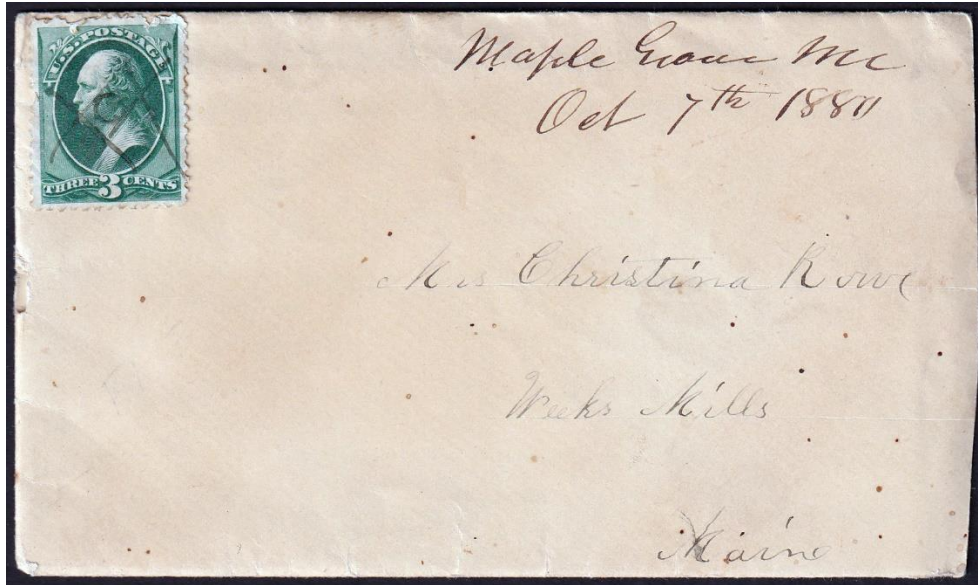 U.S. POSTAGE
THREE 3 CENTS
Maple Grove Me
Oct 7th 1880
Mrs Christina Rowe
Weeks Mills
Maine